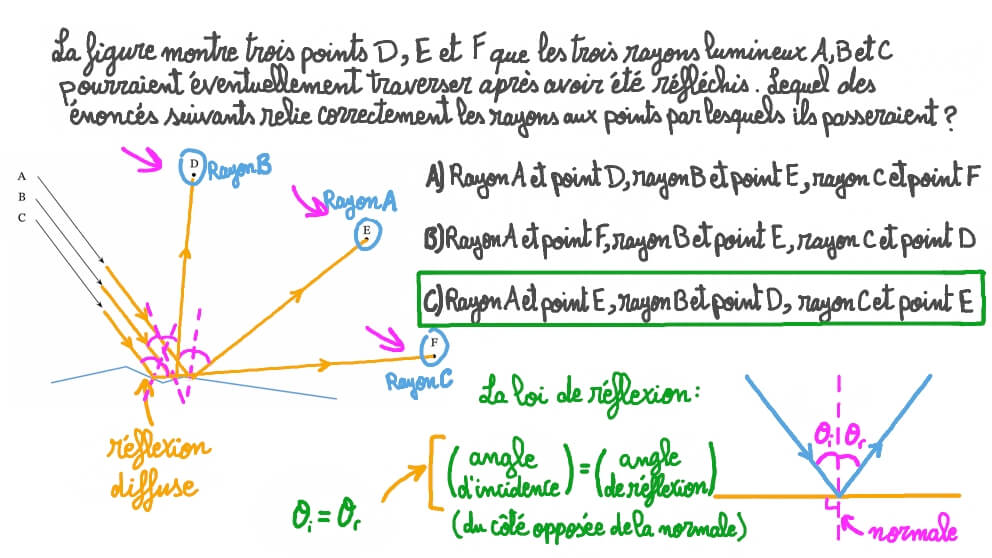 La figure montre trois points D, E et F que les trois rayons lumineux A, B et C
pourraient éventuellement traverser après avoir été réfléchis. Lequel des
énoncés suivants relie correctement les rayons aux points par lesquels ils passeraient ?
A
B
C
D
Rayon B
Rayon A
E
F
Rayon C
A) Rayon A et point D, rayon B et point E, rayon C et point F
B) Rayon A et point F, rayon B et point E, rayon C et point D
C) Rayon A et point E, rayon B et point D, rayon C et point E
réflexion
diffuse
La loi de réflexion :
(angle d'incidence) = (angle de réflexion)
(du côté opposée de la normale)
θi = θr
θi θr
normale